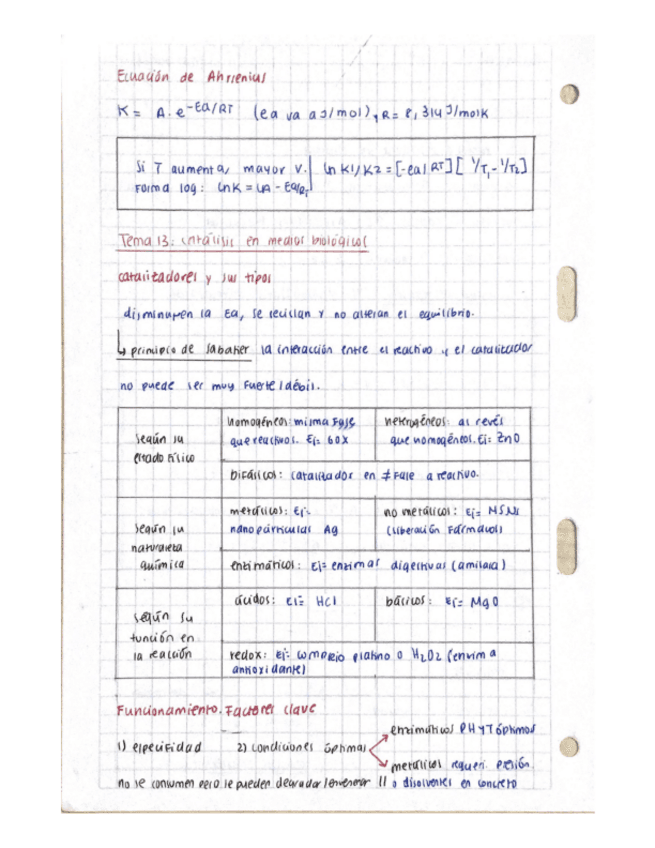 Ecuación de Ahrrenius
K = A. e^-Ea/RT (ea va a J/mol), R= 8,314 J/molK
Si T aumenta, mayor v. ln K1/K2 = [-ea/RT] [1/T1 - 1/T2]
Forma log: lnK = LA - Ea/RT
Tema 13: catálisis en medios biológicos
catalizadores y sus tipos
disminuyen la Ea, se reciclan y no alteran el equilibrio.
principio de Sabatier la interacción entre el reactivo y el catalizador
no puede ser muy fuerte/débil.
según su estado físico
homogéneos: misma fase que reactivos. Ej= GOX
heterogéneos: al revés que homogéneos. Ej= ZnO
bifásicos: catalizador en ≠ fase a reactivo.
según su naturaleza química
metálicos: Ej= nanopartículas Ag
no metálicos: Ej= MSNs (liberación fármacos)
enzimáticos: Ej= enzimas digestivas (amilasa)
según su función en la reacción
ácidos: Ej= HCl
básicos: Ej= MgO
redox: Ej= complejo platino o H2O2 (enzima antioxidante)
Funcionamiento. Factores clave
1) especifidad 2) condiciones óptimas
enzimáticos PH y T óptimos
metálicos requeri. presión.
no se consumen pero se pueden degradar/envenenar // o disolventes en concreto